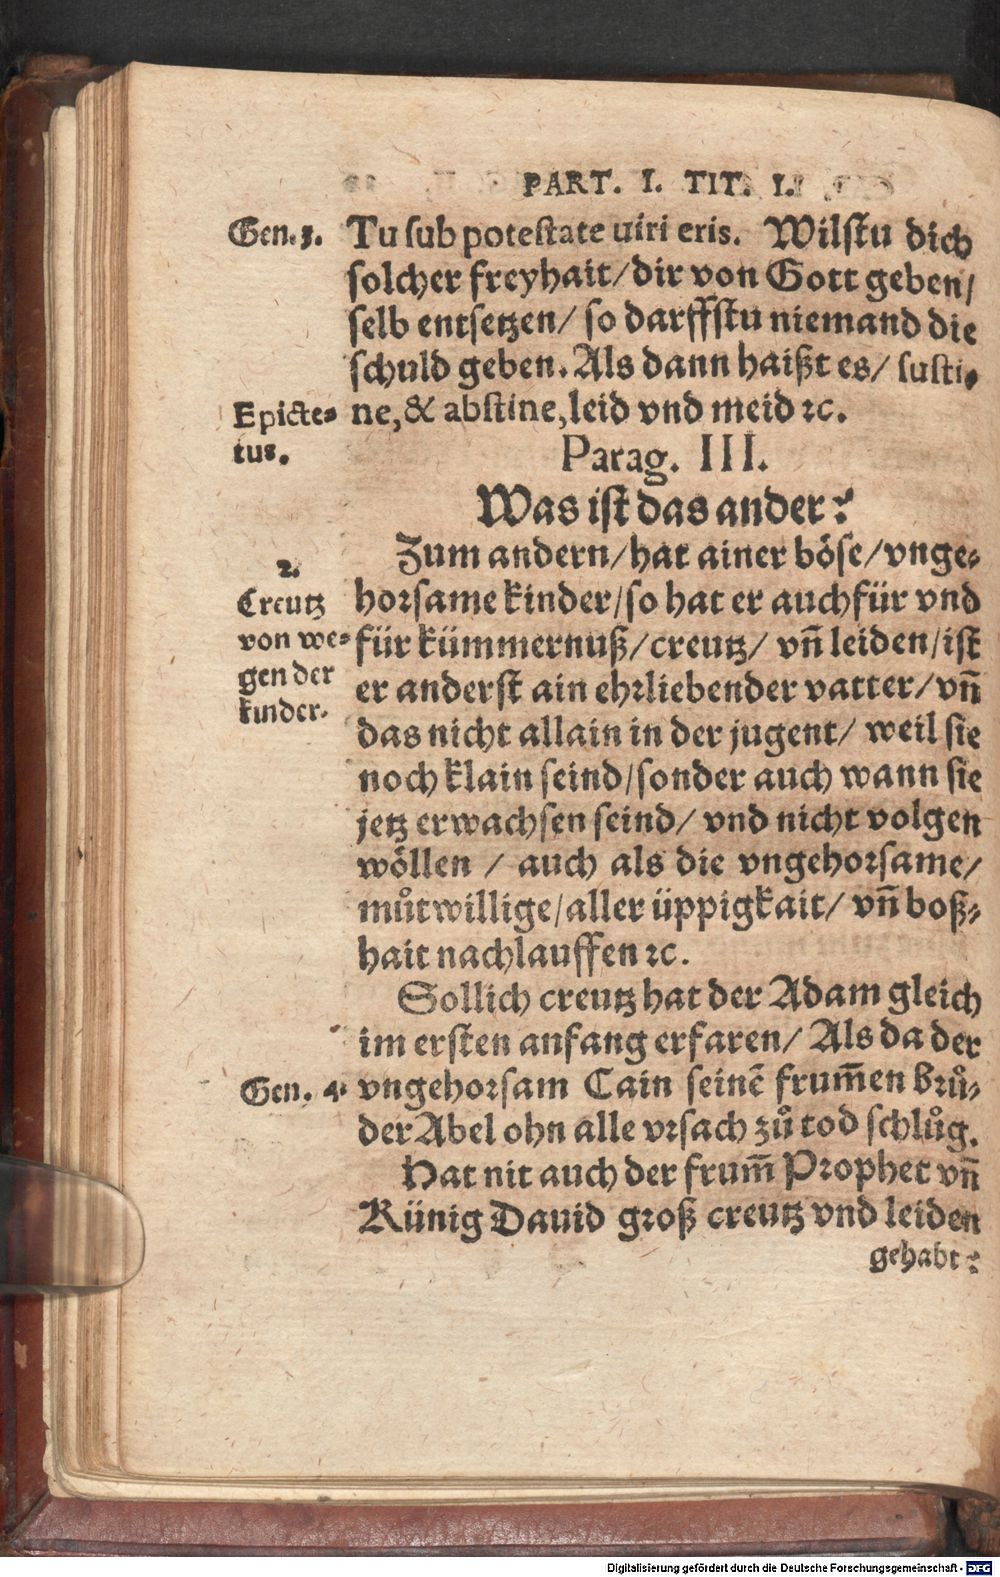 PART. I. TIT. I.
Gen. 3.
Tu sub potestate uiri eris. Wilstu dich
solcher freyhait/dir von Gott geben/
selb entsetzen/ so darffstu niemand die
schuld geben. Als dann haißt es/ susti-
Epicte-
tus.
ne, & abstine, leid vnd meid ꝛc.
Parag. III.
Was ist das ander?
2.
Creutz
von we-
gen der
kinder.
Zum andern/hat ainer böse/vnge-
horsame kinder/so hat er auch für vnd
für kümmernuß/creutz/ vñ leiden/ist
er anderst ain ehrliebender vatter/vñ
das nicht allain in der jugent/ weil sie
noch klain seind/sonder auch wann sie
jetz erwachsen seind/ vnd nicht volgen
wöllen / auch als die vngehorsame/
můtwillige/aller üppigkait/ vñ boß-
hait nachlauffen ꝛc.
Sollich creutz hat der Adam gleich
im ersten anfang erfaren/ Als da der
Gen. 4.
vngehorsam Cain seinē frum̃en brů-
der Abel ohn alle vrsach zů tod schlůg.
Hat nit auch der frum̃ Prophet vñ
Künig Dauid groß creutz vnd leiden
gehabt?
Digitalisierung gefördert durch die Deutsche Forschungsgemeinschaft - DFG